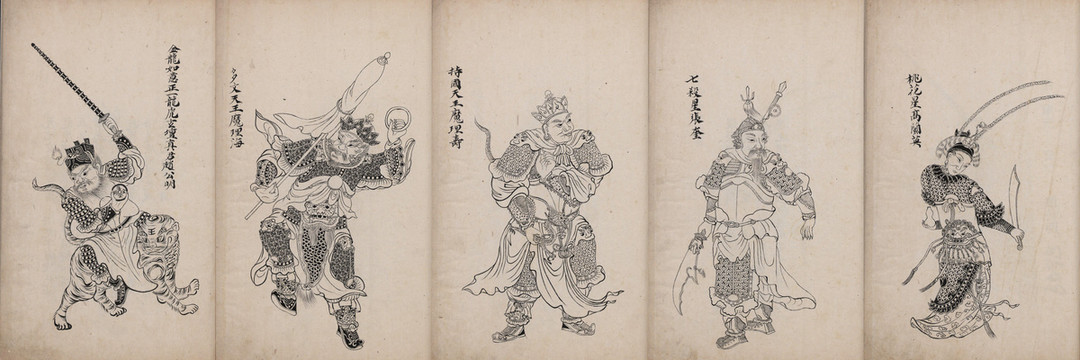 金龍如意正一龍虎玄壇真君趙公明
多文天王魔理海
持國天王魔理壽
七殺星張奎
桃花星高蘭英
王